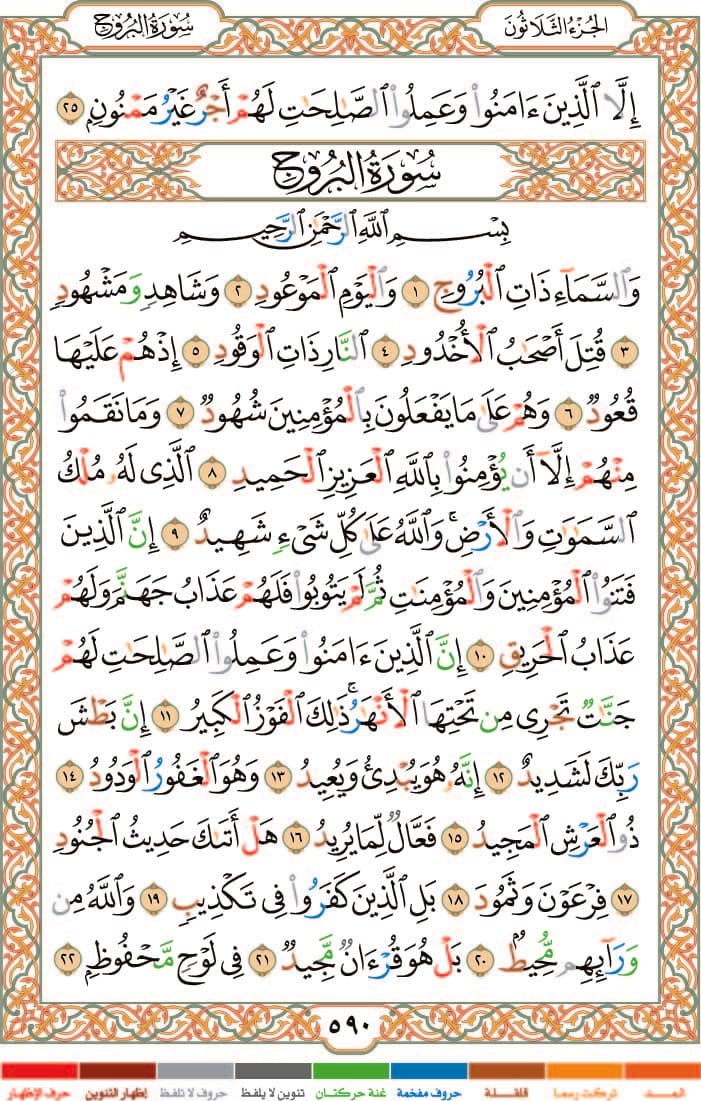 سُورَةُ البُرُوجِ
الجُزءُ الثَّلَاثُونَ
إِلَّا ٱلَّذِينَ ءَامَنُوا۟ وَعَمِلُوا۟ ٱلصَّٰلِحَٰتِ لَهُمْ أَجْرٌ غَيْرُ مَمْنُونٍۭ ٢٥
سُورَةُ البُرُوجِ
بِسْمِ ٱللَّهِ ٱلرَّحْمَٰنِ ٱلرَّحِيمِ
وَٱلسَّمَآءِ ذَاتِ ٱلْبُرُوجِ ١ وَٱلْيَوْمِ ٱلْمَوْعُودِ ٢ وَشَاهِدٍ وَمَشْهُودٍ
٣ قُتِلَ أَصْحَٰبُ ٱلْأُخْدُودِ ٤ ٱلنَّارِ ذَاتِ ٱلْوَقُودِ ٥ إِذْ هُمْ عَلَيْهَا
قُعُودٌ ٦ وَهُمْ عَلَىٰ مَا يَفْعَلُونَ بِٱلْمُؤْمِنِينَ شُهُودٌ ٧ وَمَا نَقَمُوا۟
مِنْهُمْ إِلَّآ أَن يُؤْمِنُوا۟ بِٱللَّهِ ٱلْعَزِيزِ ٱلْحَمِيدِ ٨ ٱلَّذِى لَهُۥ مُلْكُ
ٱلسَّمَٰوَٰتِ وَٱلْأَرْضِ ۚ وَٱللَّهُ عَلَىٰ كُلِّ شَىْءٍ شَهِيدٌ ٩ إِنَّ ٱلَّذِينَ
فَتَنُوا۟ ٱلْمُؤْمِنِينَ وَٱلْمُؤْمِنَٰتِ ثُمَّ لَمْ يَتُوبُوا۟ فَلَهُمْ عَذَابُ جَهَنَّمَ وَلَهُمْ
عَذَابُ ٱلْحَرِيقِ ١٠ إِنَّ ٱلَّذِينَ ءَامَنُوا۟ وَعَمِلُوا۟ ٱلصَّٰلِحَٰتِ لَهُمْ
جَنَّٰتٌ تَجْرِى مِن تَحْتِهَا ٱلْأَنْهَٰرُ ۚ ذَٰلِكَ ٱلْفَوْزُ ٱلْكَبِيرُ ١١ إِنَّ بَطْشَ
رَبِّكَ لَشَدِيدٌ ١٢ إِنَّهُۥ هُوَ يُبْدِئُ وَيُعِيدُ ١٣ وَهُوَ ٱلْغَفُورُ ٱلْوَدُودُ ١٤
ذُو ٱلْعَرْشِ ٱلْمَجِيدُ ١٥ فَعَّالٌ لِّمَا يُرِيدُ ١٦ هَلْ أَتَىٰكَ حَدِيثُ ٱلْجُنُودِ
١٧ فِرْعَوْنَ وَثَمُودَ ١٨ بَلِ ٱلَّذِينَ كَفَرُوا۟ فِى تَكْذِيبٍ ١٩ وَٱللَّهُ مِن
وَرَآئِهِم مُّحِيطٌۢ ٢٠ بَلْ هُوَ قُرْءَانٌ مَّجِيدٌ ٢١ فِى لَوْحٍ مَّحْفُوظٍۭ ٢٢
٥٩٠
المــــد
تركت رسما
قلقلــة
حروف مفخمة
غنة حركتان
تنوين لا يلفظ
حروف لا تلفظ
إظهار التنوين
حرف الإظهار